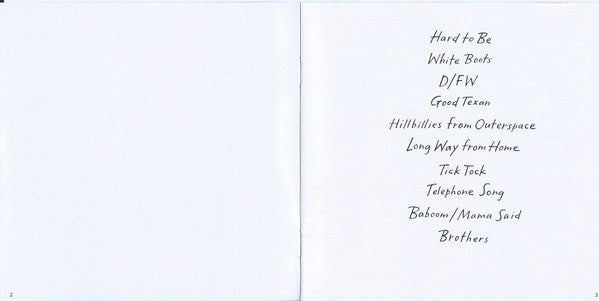 Hard to Be
White Boots
D/FW
Good Texan
Hillbillies from Outerspace
Long Way from Home
Tick Tock
Telephone Song
Baboom/Mama Said
Brothers
2
3